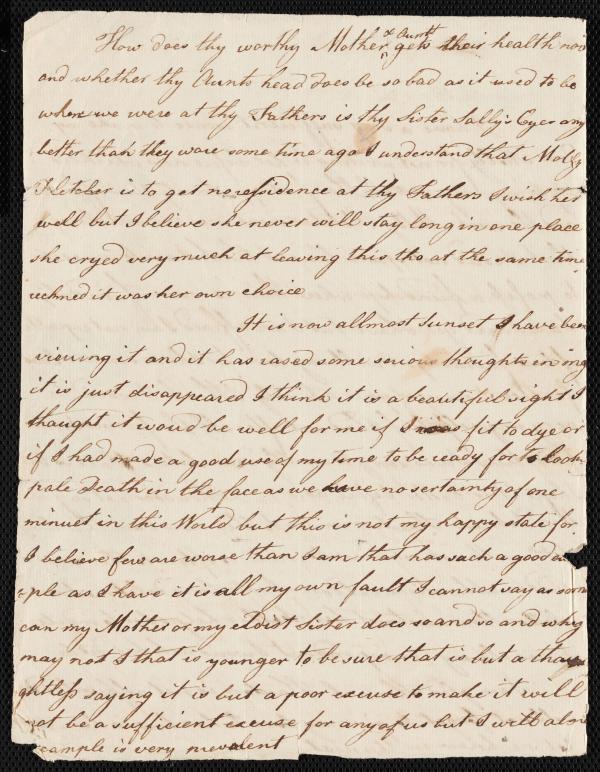 How does thy worthy Mother & Aunt gets their health now
and whether thy Aunts head does be so bad as it used to be
when we were at thy Fathers is thy Sister Sally's Eyes any
better than they ware some time ago I understand that Molly
Fletcher is to get no residence at thy Fathers I wish her
well but I believe she never will stay long in one place
she cryed very much at leaving this tho at the same time
reckned it was her own choice
It is now allmost Sunset I have been
viewing it and it has rased some serious thoughts in my
it is just disappeared I think it is a beautiful sight I
thought it woud be well for me if I was fit to dye or
if I had made a good use of my time to be ready for to look
pale Death in the face as we have no sertainty of one
minuet in this World but this is not my happy state for
I believe few are worse than I am that has such a good ex
=ple as I have it is all my own fault I cannot say as some
can my Mother or my eldist Sister does so and so and why
may not I that is younger to be sure that is but a thou
ghtless saying it is but a poor excuse to make it will
not be a sufficient excuse for any of us but I will allow
example is very